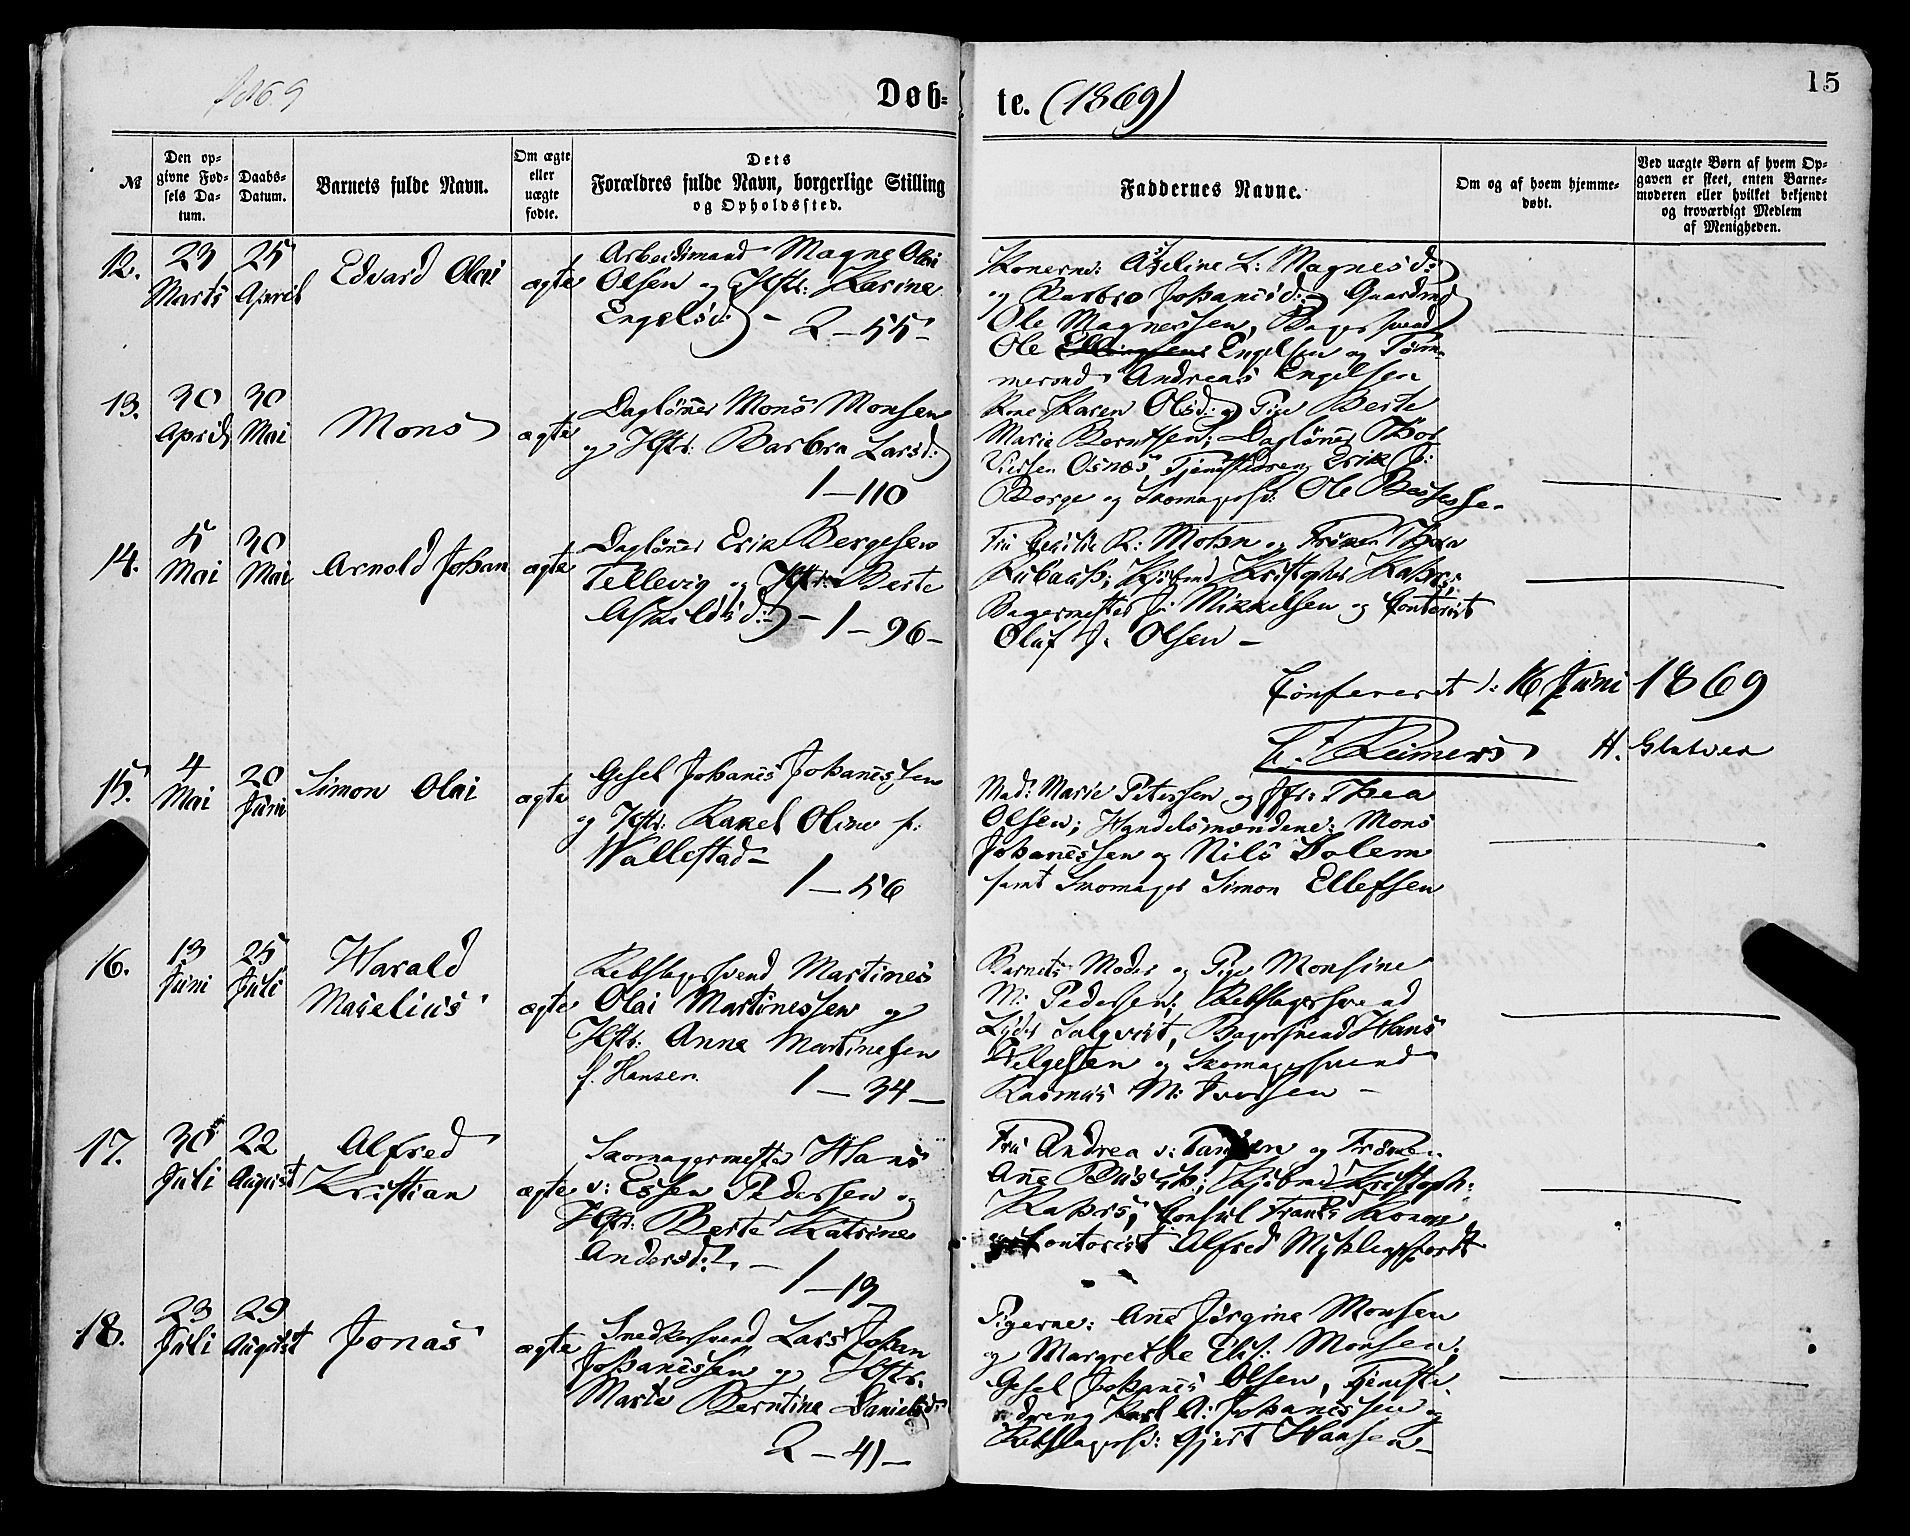 1869
Døb-
te. (1869)
15
№
Den op-
givne Fød-
sels Da-
tum.
Daabs-
Datum.
Barnets fulde Navn.
Om ægte
eller
uægte
fødte.
Dets
Forældres fulde Navn, borgerlige Stilling
og Opholdssted.
Faddernes Navne.
Om og af hvem hjemme-
døbt.
Ved uægte Børn af hvem Op-
gaven er skeet, enten Barne-
moderen eller hvilket bekjendt
og troværdigt Medlem
af Menigheden.
12.
23
Marts
25
April
Edvard Olai
ægte
Arbeidsmand Magne Olai
Olsen og Hstr: Karine
Engelsd:
2-55
Konerne: Aseline L: Magnesd:
og Barbro Johanesd:
Ole Magnessen, Bagersvend
Ole Engelsen og Tøm-
mermd Andreas Engelsen
13.
30
April
30
Mai
Mons
ægte
Daglønner Mons Monsen
og Hstr: Barbra Larsd:
1-110
Kone Karen Olsd: og Pige Berte
Marie Berntsen; Daglønner Thor
Osnes, Tjenestedreng Erik J:
Borge og Skomagersv: Ole
14.
5
Mai
30
Mai
Arnold Johan
ægte
Daglønner Erik Bergesen
Tellevig og Hstr: Berte
Askildsd:
1-96-
Fru R: Mohn og Frøken Thora
Kubauth; Kjøbmd Kristopher Kahrs;
Bagermester J: Mikkelsen og Contorist
Oluf J. Olsen-
Confereret d: 16 Juni 1869
Reimers
H.
15.
4
Mai
20
Juni
Simon Olai
ægte
Gesel Johanes Johanessen
og Hstr: Rakel Oline f:
Vallestad-
1-56
Mad: Marie Petersen og Jfr: Thea
Olsen; Handelsmændene: Mons
Johanessen og Nils Solem
samt Skomager Simon Ellefsen
16.
13
Juni
25
Juli
Harald
Marelius
ægte
Rebslagersvend Martines
Olai Martinessen og
Hstr: Anna Martinesen
f. Hansen.
1-34-
Barnets Moder og Pige Monsine
M: Pedersen; Rebslagersvend
Salqvist, Bagersvend Hans
Helgesen og Skomagersvend
Rasmus M: Iversen -
17.
30
Juli
22
August
Alfred
Kristian
ægte
Skomagermester Hans
v: Essen Pedersen og
Hstr: Berte Katrine
Andersd:
1-19
Fru Andrea v: Tangen og Frøken
Ane; Kjøbmd Kristoph:
Kahrs; Consul Frants Konow
og Contorist Alfred
18.
23
Juli
29
August
Jonas
ægte
Snedkersvend Lars Johan
Johanessen og Hstr:
Marie Berntine Danielsd:
2-41-
Pigerne: Ane Jørgine Monsen
og Margrethe Elis: Monsen;
Gesel Johanes Olsen, Tjeneste-
dreng Karl A: Johanessen og
Rebslagersv: Gjert Hansen-